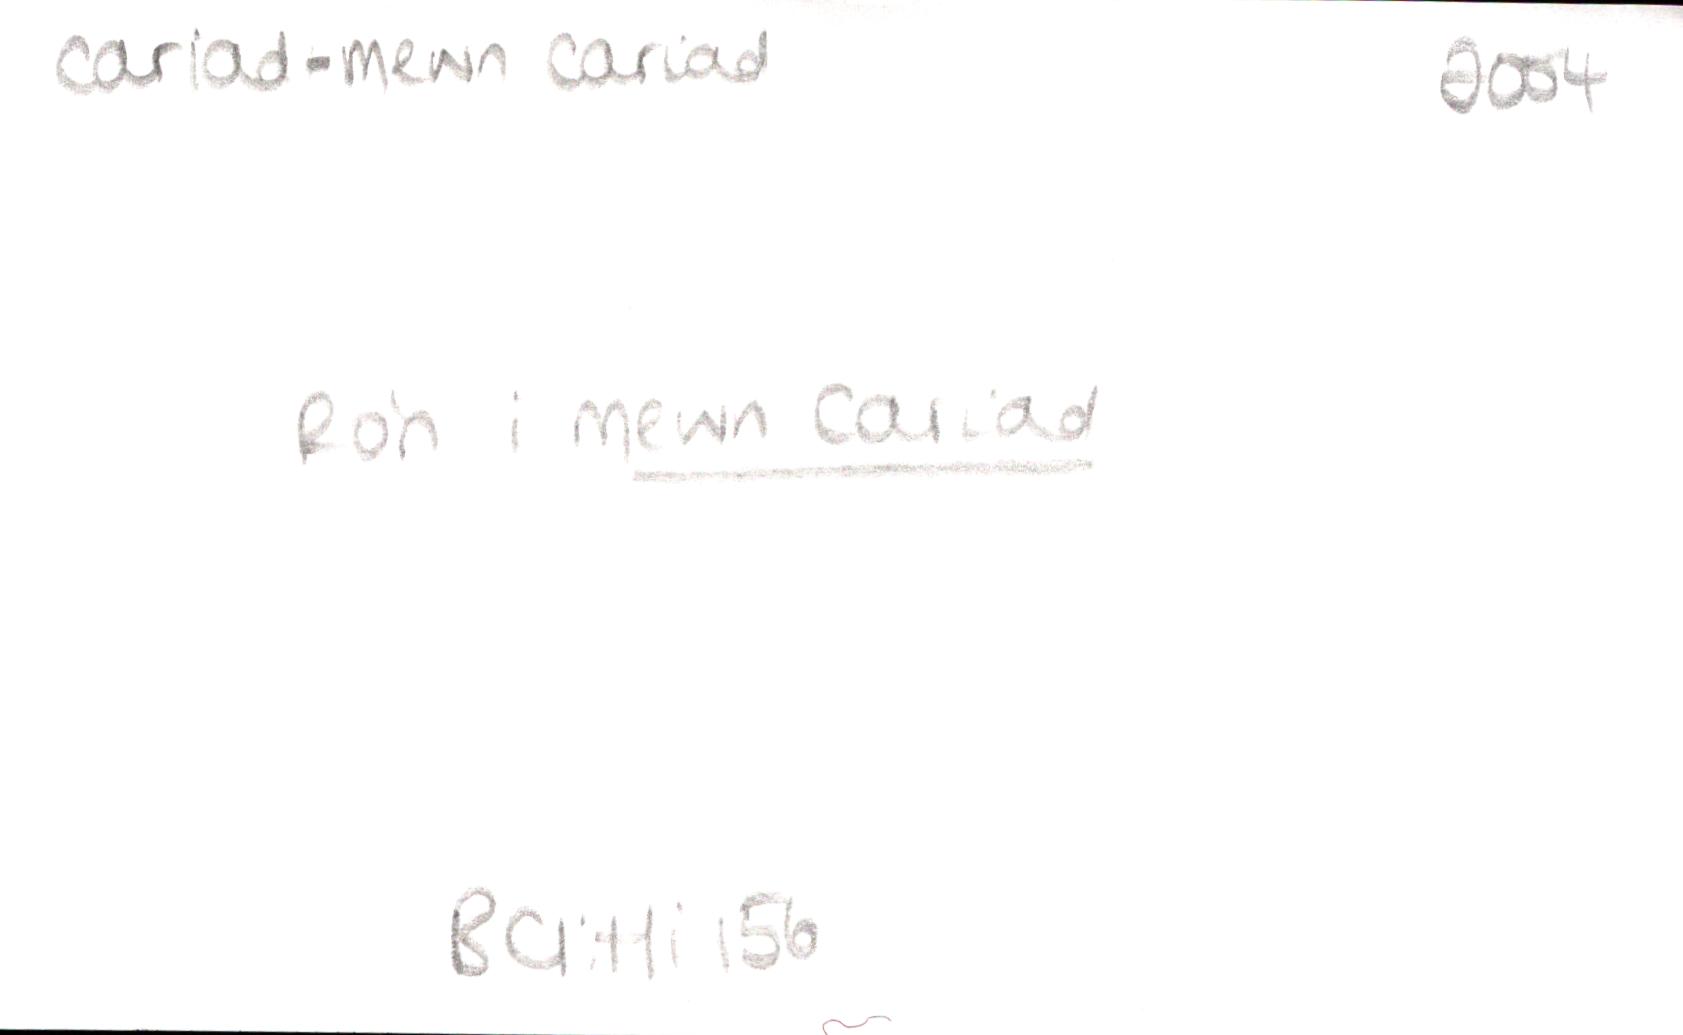 cariad-mewn cariad 2004
Ro'n i mewn cariad
BCI:Hi 156